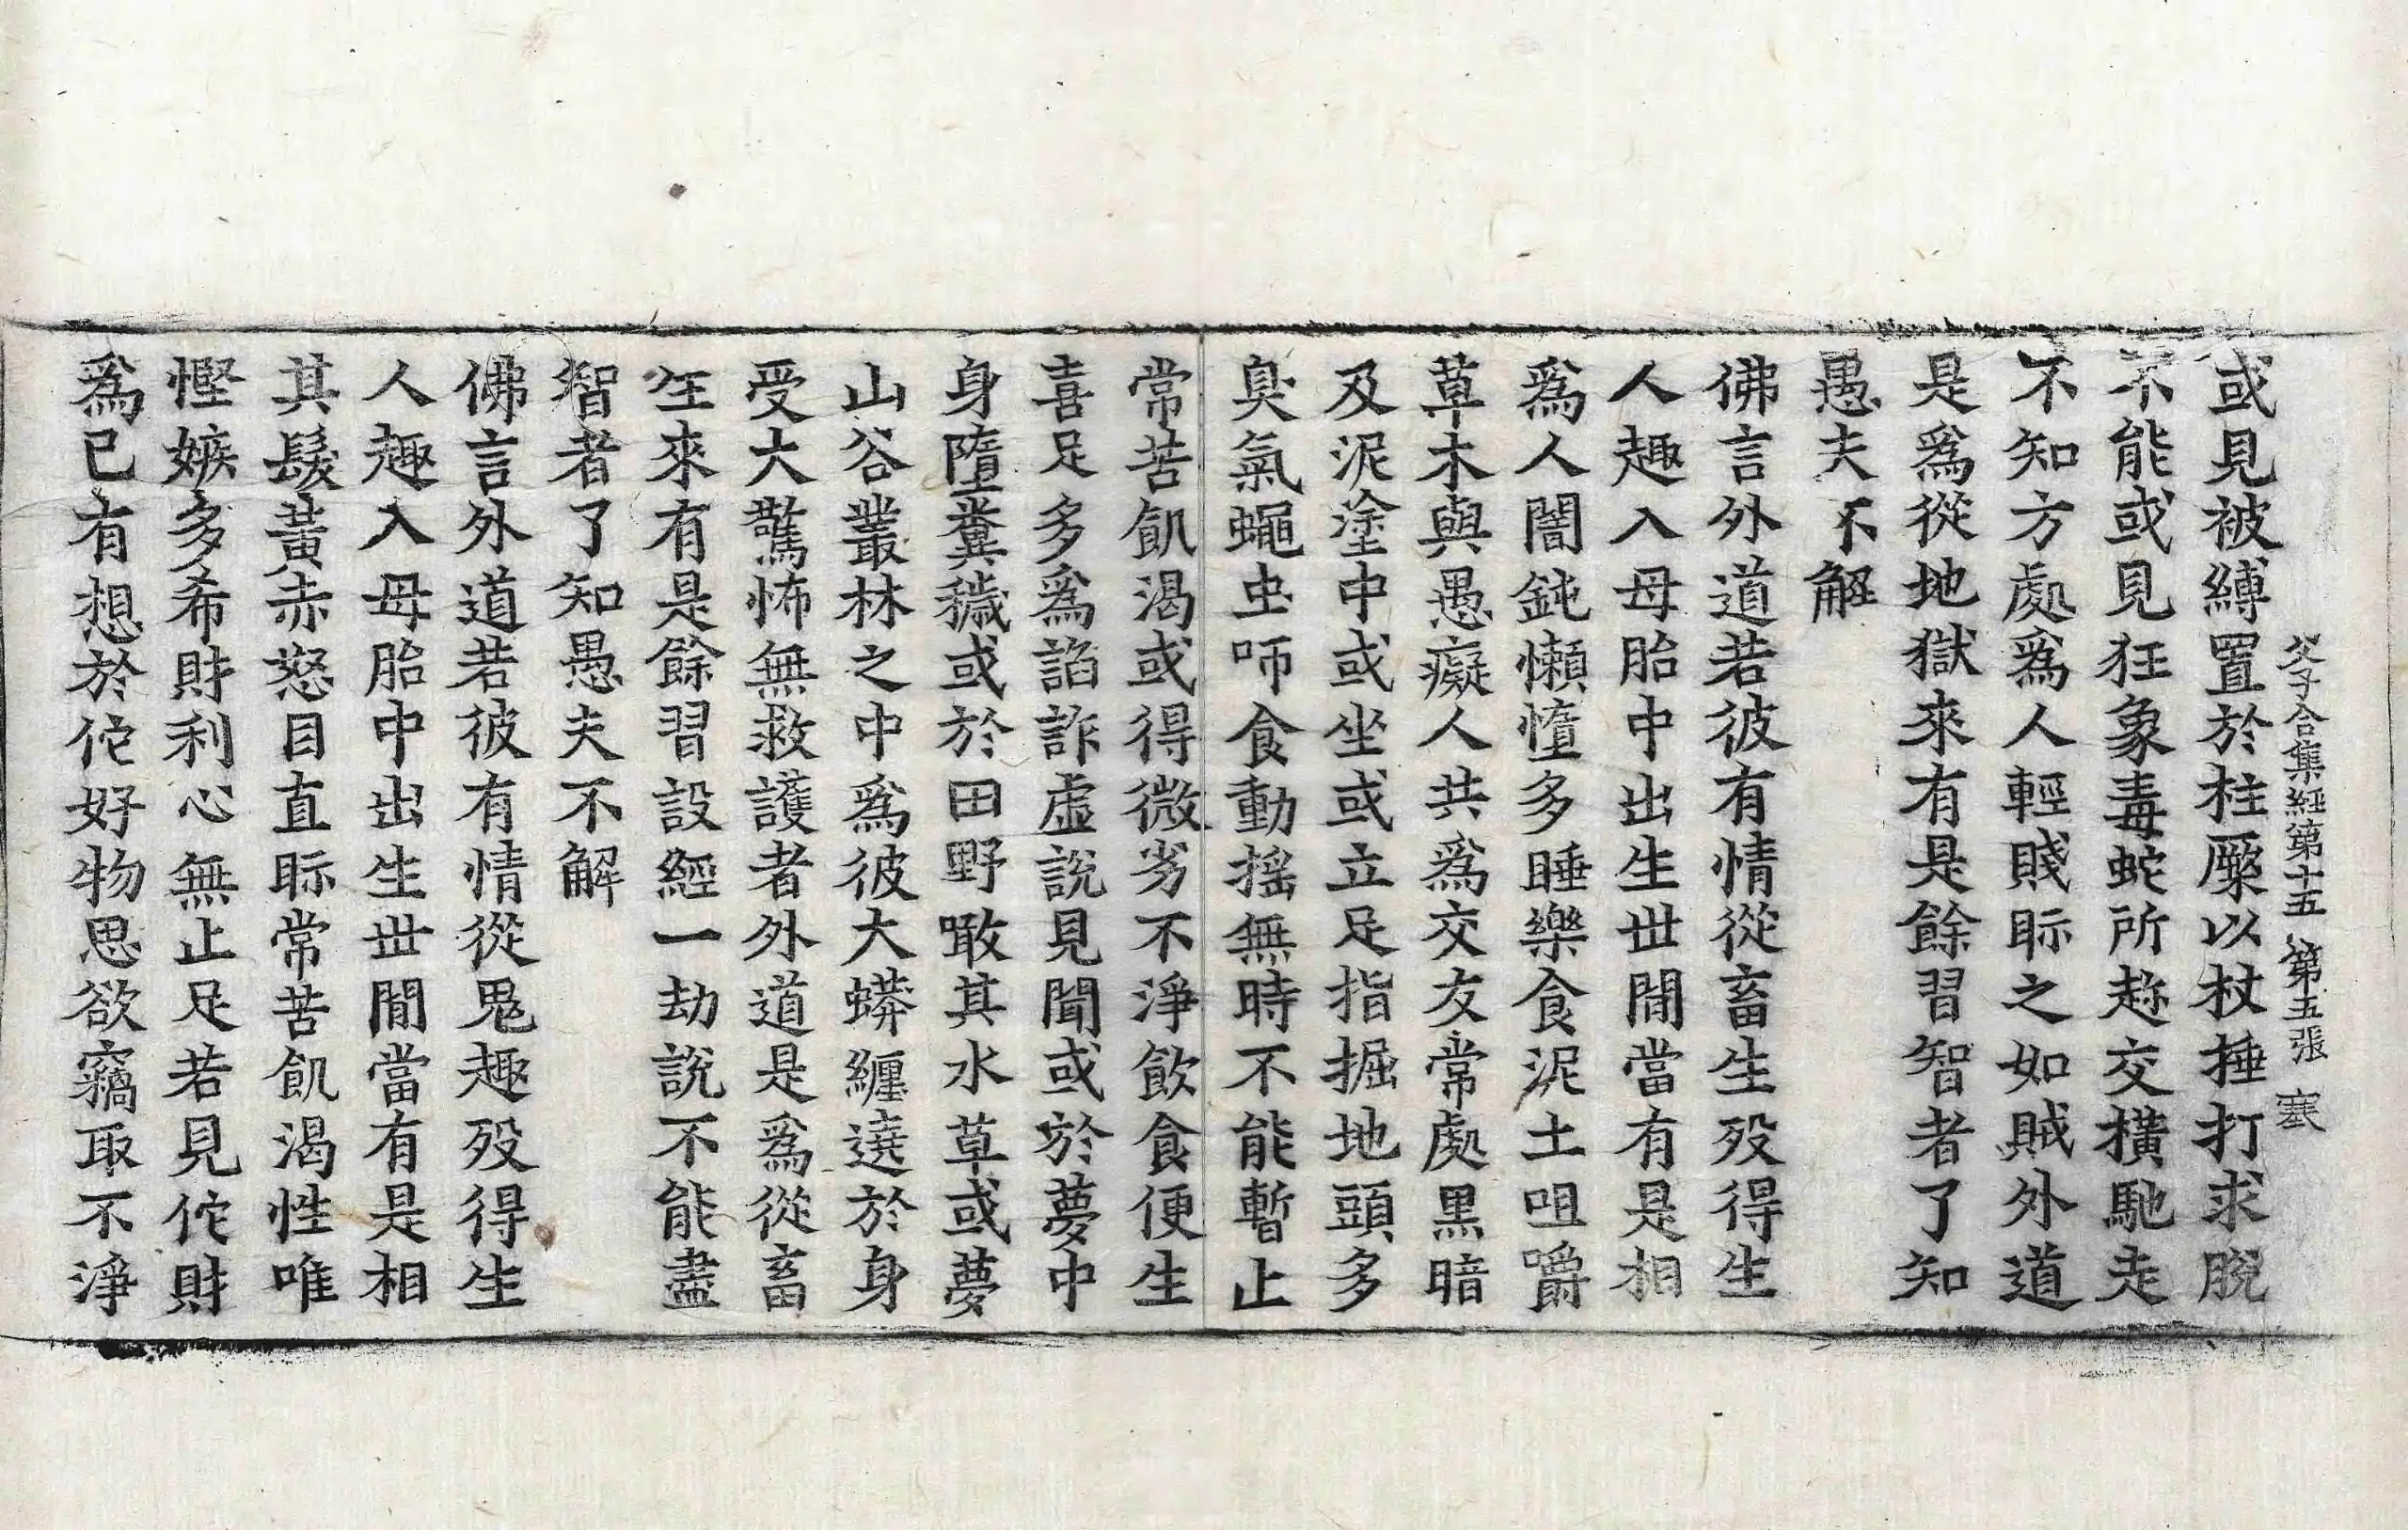 父子合集経第十五 第五張 寒
或見被縛置於柱橜以杖捶打求脫
不能或見狂象毒蛇所趂交橫馳走
不知方處爲人輕賤眎之如賊外道
是爲從地獄來有是餘習智者了知
愚夫不解
佛言外道若彼有情從畜生歿得生
人趣入母胎中出生世閒當有是相
爲人闇鈍懶憧多睡樂食泥土咀嚼
草木與愚癡人共爲交友常處黑暗
及泥塗中或坐或立足指掘地頭多
臭氣蠅虫咂食動搖無時不能暫止
常苦飢渴或得微劣不淨飮食便生
喜足多爲諂詐虛說見聞或於夢中
身墮糞穢或於田野噉其水草或夢
山谷叢林之中爲彼大蟒纏遶於身
受大驚怖無救護者外道是爲從畜
生來有是餘習設經一劫說不能盡
智者了知愚夫不解
佛言外道若彼有情從鬼趣歿得生
人趣入母胎中出生世閒當有是相
其髮黃赤怒目直眎常苦飢渴性唯
慳嫉多希財利心無止足若見佗財
爲已有想於佗好物思欲竊取不淨